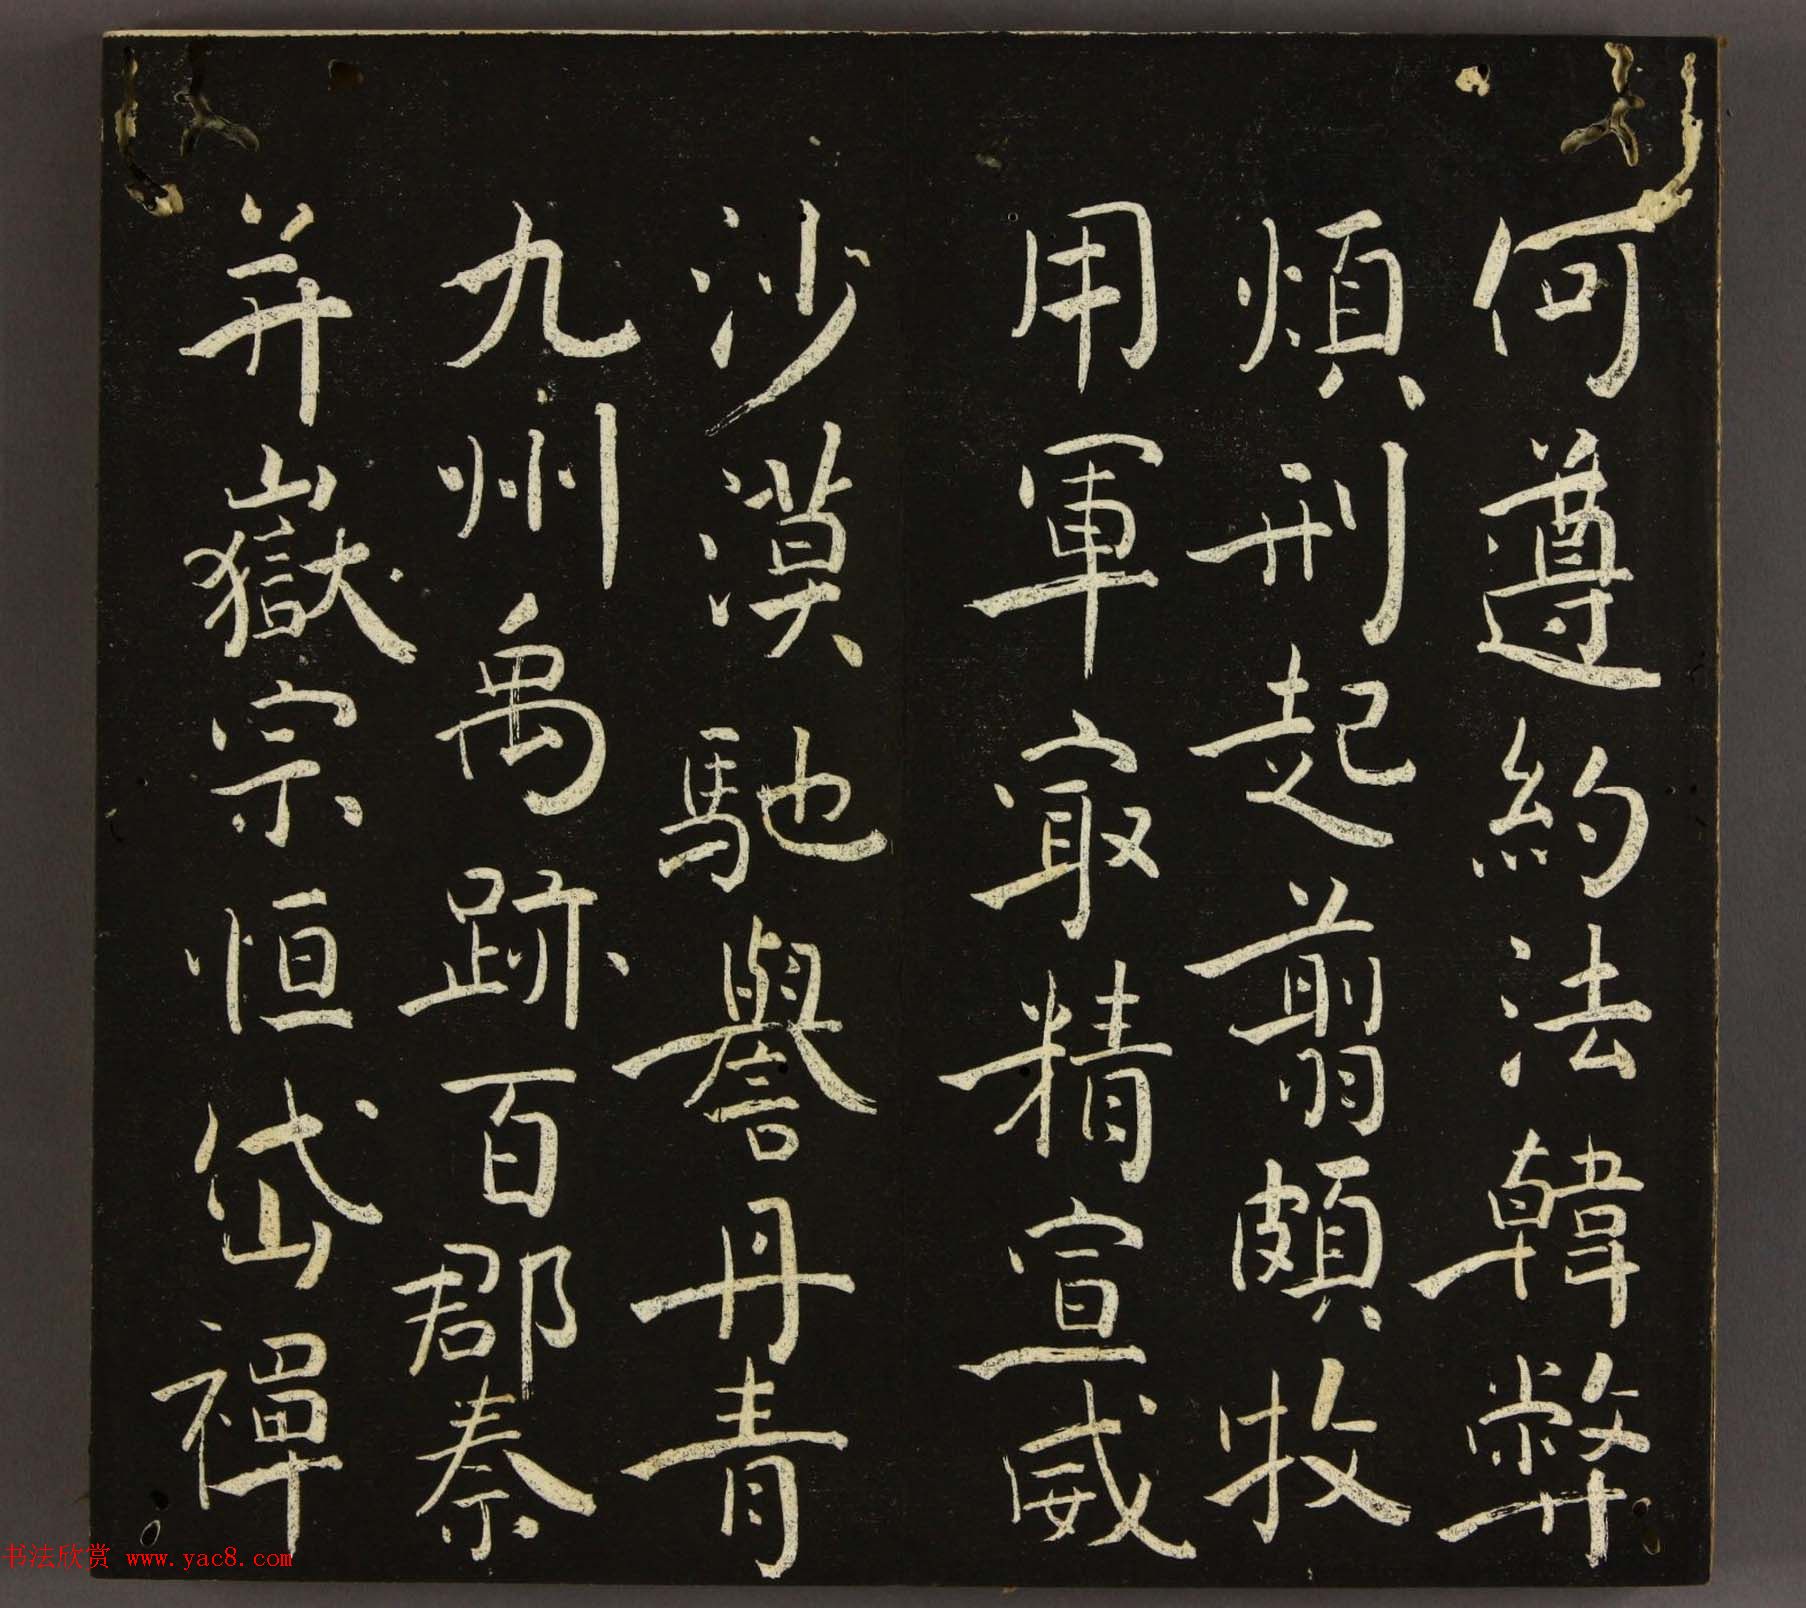 何遵約法韓弊
煩刑起翦頗牧
用軍冣精宣威
沙漠馳譽丹青
九州禹跡百郡秦
并嶽宗恒岱禪
书法欣赏 www.yac8.com